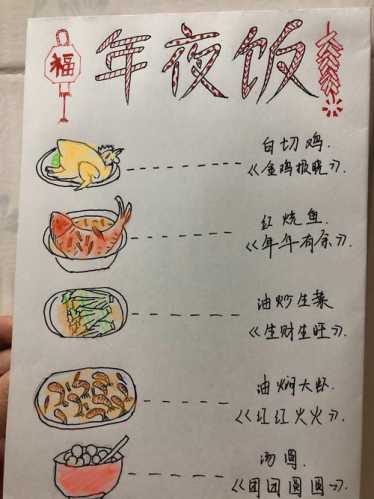 福
年夜饭
白切鸡.
《金鸡报晓》.
红烧鱼.
《年年有余》.
油炒生菜
《生财生旺》.
油焖大虾.
《红红火火》.
汤圆.
《团团圆圆》.